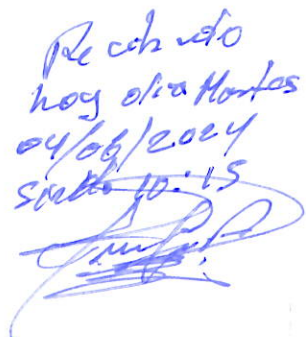 Recibido
hoy dia Martes
04/06/2024
siendo 10:15